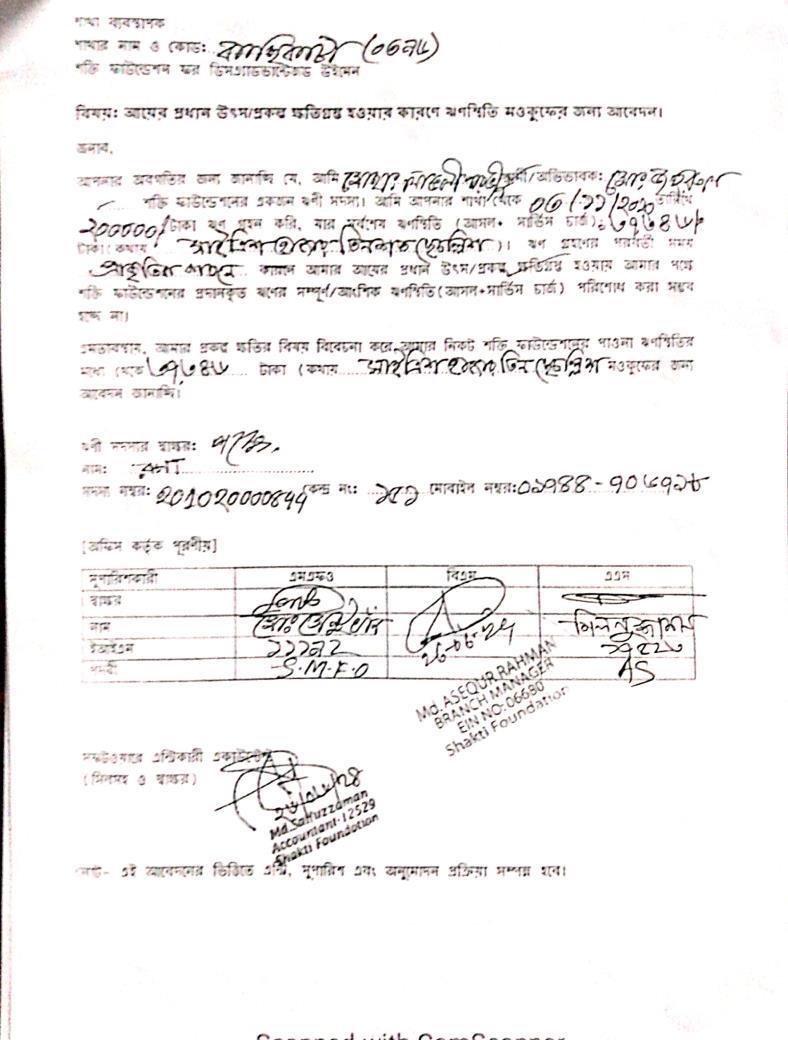 শাখা ব্যবস্থাপক
শাখার নাম ও কোড: (০৬৭৬)
শক্তি ফাউন্ডেশন ফর ডিসএ্যাডভান্টেজড উইমেন
বিষয়: আয়ের প্রধান উৎস/প্রকল্প ক্ষতিগ্রস্ত হওয়ার কারণে ঋণস্থিতি মওকুফের জন্য আবেদন।
জনাব,
আপনার অবগতির জন্য জানাচ্ছি যে, আমি মোছাঃ স্বামী/অভিভাবক: মোঃ
শক্তি ফাউন্ডেশনের একজন ঋণী সদস্য। আমি আপনার শাখা থেকে ০৬/১১/২০ তারিখে
200000/ টাকা ঋণ গ্রহন করি, যার সর্বশেষ ঋণস্থিতি (আসল+ সার্ভিস চার্জ)ঃ ৩৭৩৪৬/
টাকা(কথায় সাইত্রিশ হাজার তিনশত ছেচল্লিশ)। ঋণ গ্রহণের পরবর্তী সময়
প্রাকৃতিক কারনে কারণে আমার আয়ের প্রধান উৎস/প্রকল্প ক্ষতিগ্রস্ত হওয়ায় আমার পক্ষে
শক্তি ফাউন্ডেশনের প্রদানকৃত ঋণের সম্পূর্ণ/আংশিক ঋণস্থিতি(আসল+সার্ভিস চার্জ) পরিশোধ করা সম্ভব
হচ্ছে না।
এমতাবস্থায়, আমার প্রকল্প ক্ষতির বিষয় বিবেচনা করে আমার নিকট শক্তি ফাউন্ডেশনের পাওনা ঋণস্থিতির
মধ্য থেকে ৩৭৩৪৬ টাকা (কথায় সাইত্রিশ হাজার তিন ছেচল্লিশ মওকুফের জন্য
আবেদন জানাচ্ছি।
ঋণী সদস্যের স্বাক্ষর:
নাম:
সদস্য নম্বর: 201020000844 কেন্দ্র নং: ১৫১ মোবাইল নম্বর:
[অফিস কর্তৃক পূরণীয়]
সুপারিশকারী এমএফও বিএম এএস
স্বাক্ষর
নাম মোঃ মিলনুজ্জামান
ইআইএন ১১১৭২
পদবী S.M.F.O AS
26-06-24
Md. ASEQUR RAHMAN
BRANCH MANAGER
EIN NO: 06680
Shakti Foundation
সফটওয়্যারে এন্ট্রিকারী একাউন্টেন্ট
(সিলসহ ও স্বাক্ষর)
Md. Saifuzzaman
Accountant-12529
Shakti Foundation
নোট- এই আবেদনের ভিত্তিতে এন্ট্রি, সুপারিশ এবং অনুমোদন প্রক্রিয়া সম্পন্ন হবে।
Scanned with CamScanner